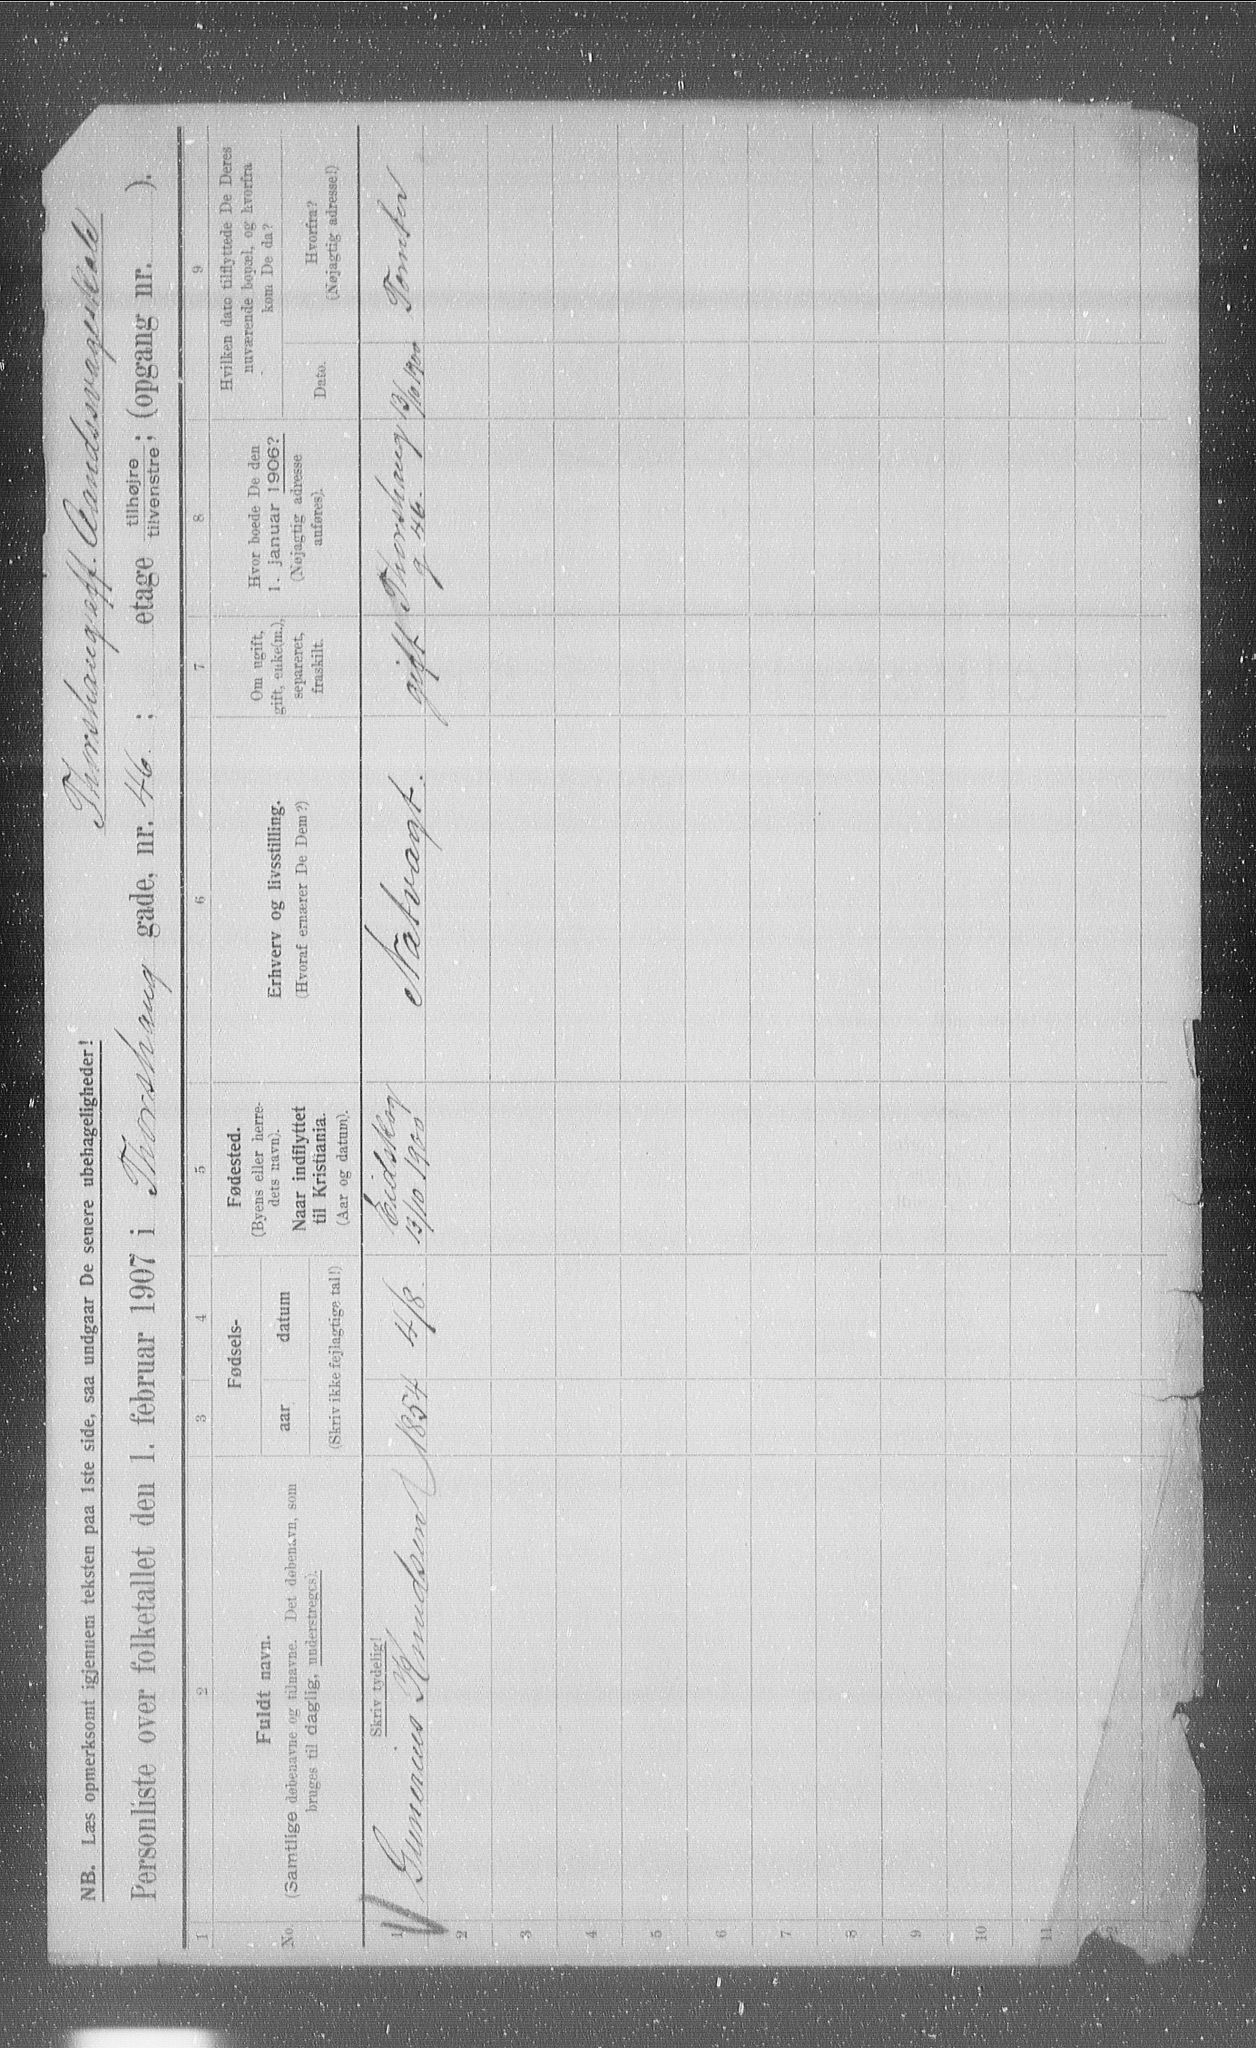 Thorshauggf. Aandssvageskole
NB. Læs opmerksomt igjennem teksten paa 1ste side, saa undgaar De senere ubehageligheder!
Personliste over folketallet den 1. februar 1907 i Thorshaug gade, nr. 46. ; etage tilhøjre tilvenstre; (opgang nr. ).
1 2 3 4 5 6 7 8 9
No.
Fuldt navn.
(Samtlige døbenavne og tilnavne. Det døbenavn, som
bruges til daglig, understreges).
Fødsels-
aar datum
(Skriv ikke fejlagtige tal!)
Fødested.
(Byens eller herre-
dets navn).
Naar indflyttet
til Kristiania.
(Aar og datum).
Erhverv og livsstilling.
(Hvoraf ernærer De Dem?)
Om ugift,
gift, enke(m.),
separeret,
fraskilt.
Hvor boede De den
1. januar 1906?
(Nøjagtig adresse
anføres).
Hvilken dato tilflyttede De Deres
nuværende bopæl, og hvorfra
kom De da?
Dato.
Hvorfra?
(Nøjagtig adresse!)
Skriv tydelig!
1 Gunerius Knudsen 1854 4/8. Eidskog Natvagt. gift Thorshaug 13/10 1900 Tomter
13/10 1900 g 46.
2
3
4
5
6
7
8
9
10
11
12